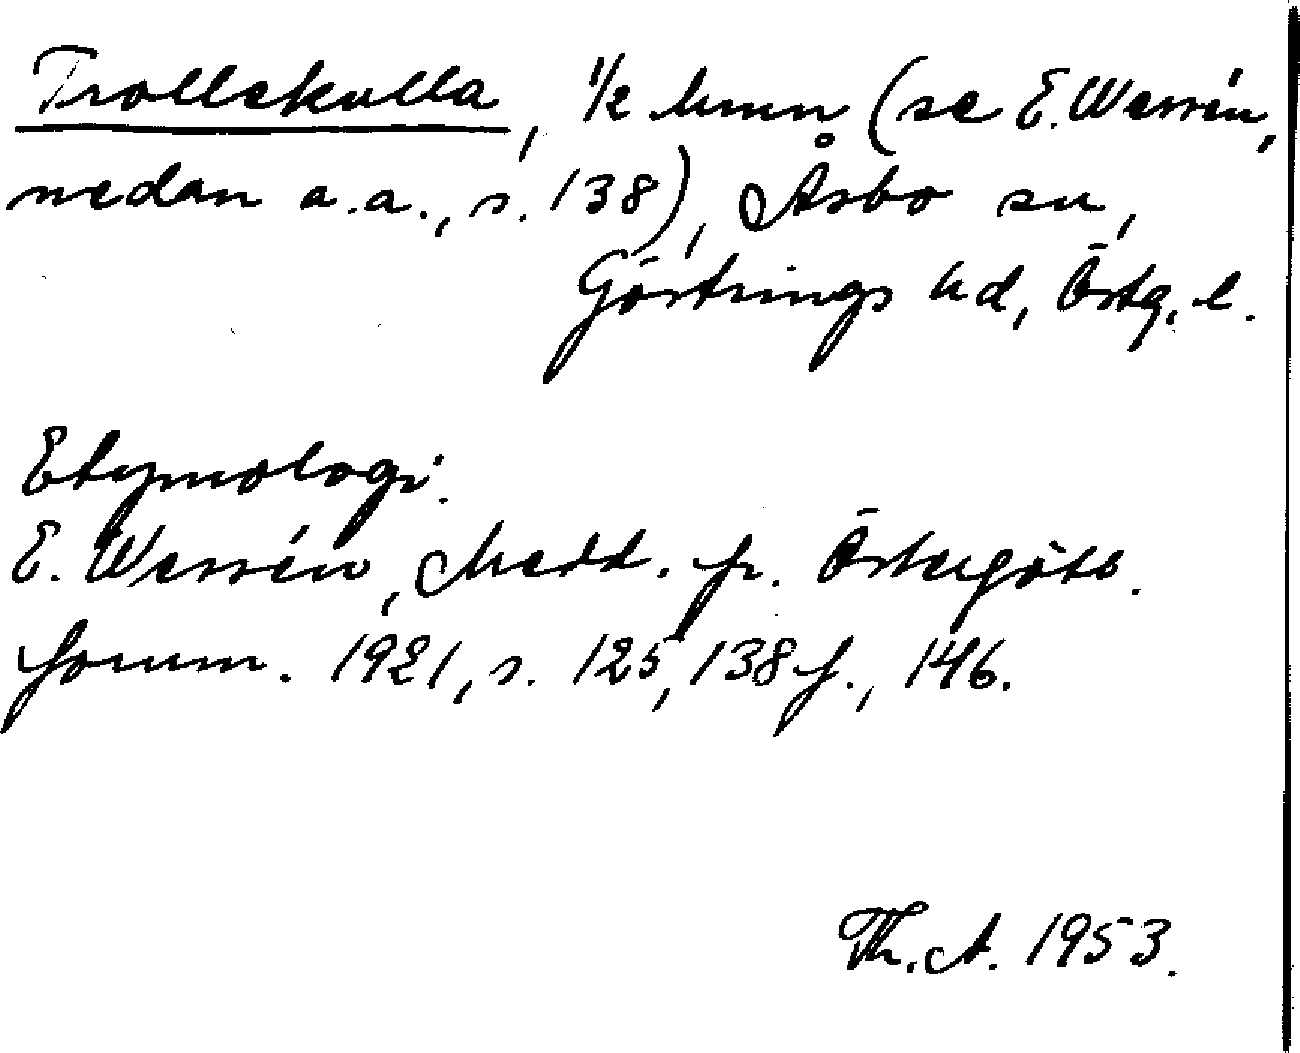 Trollekulla, 1/2 hmn (se E. Wessén,
nedan a.a., s. 138), Åsbo sn,
Göstrings hd, Östg. l.
Etymologi.
E. Wessén, Medd. fr. Östergötl.
fornm. 1921, s. 125, 138 f., 146.
Th. A. 1953.